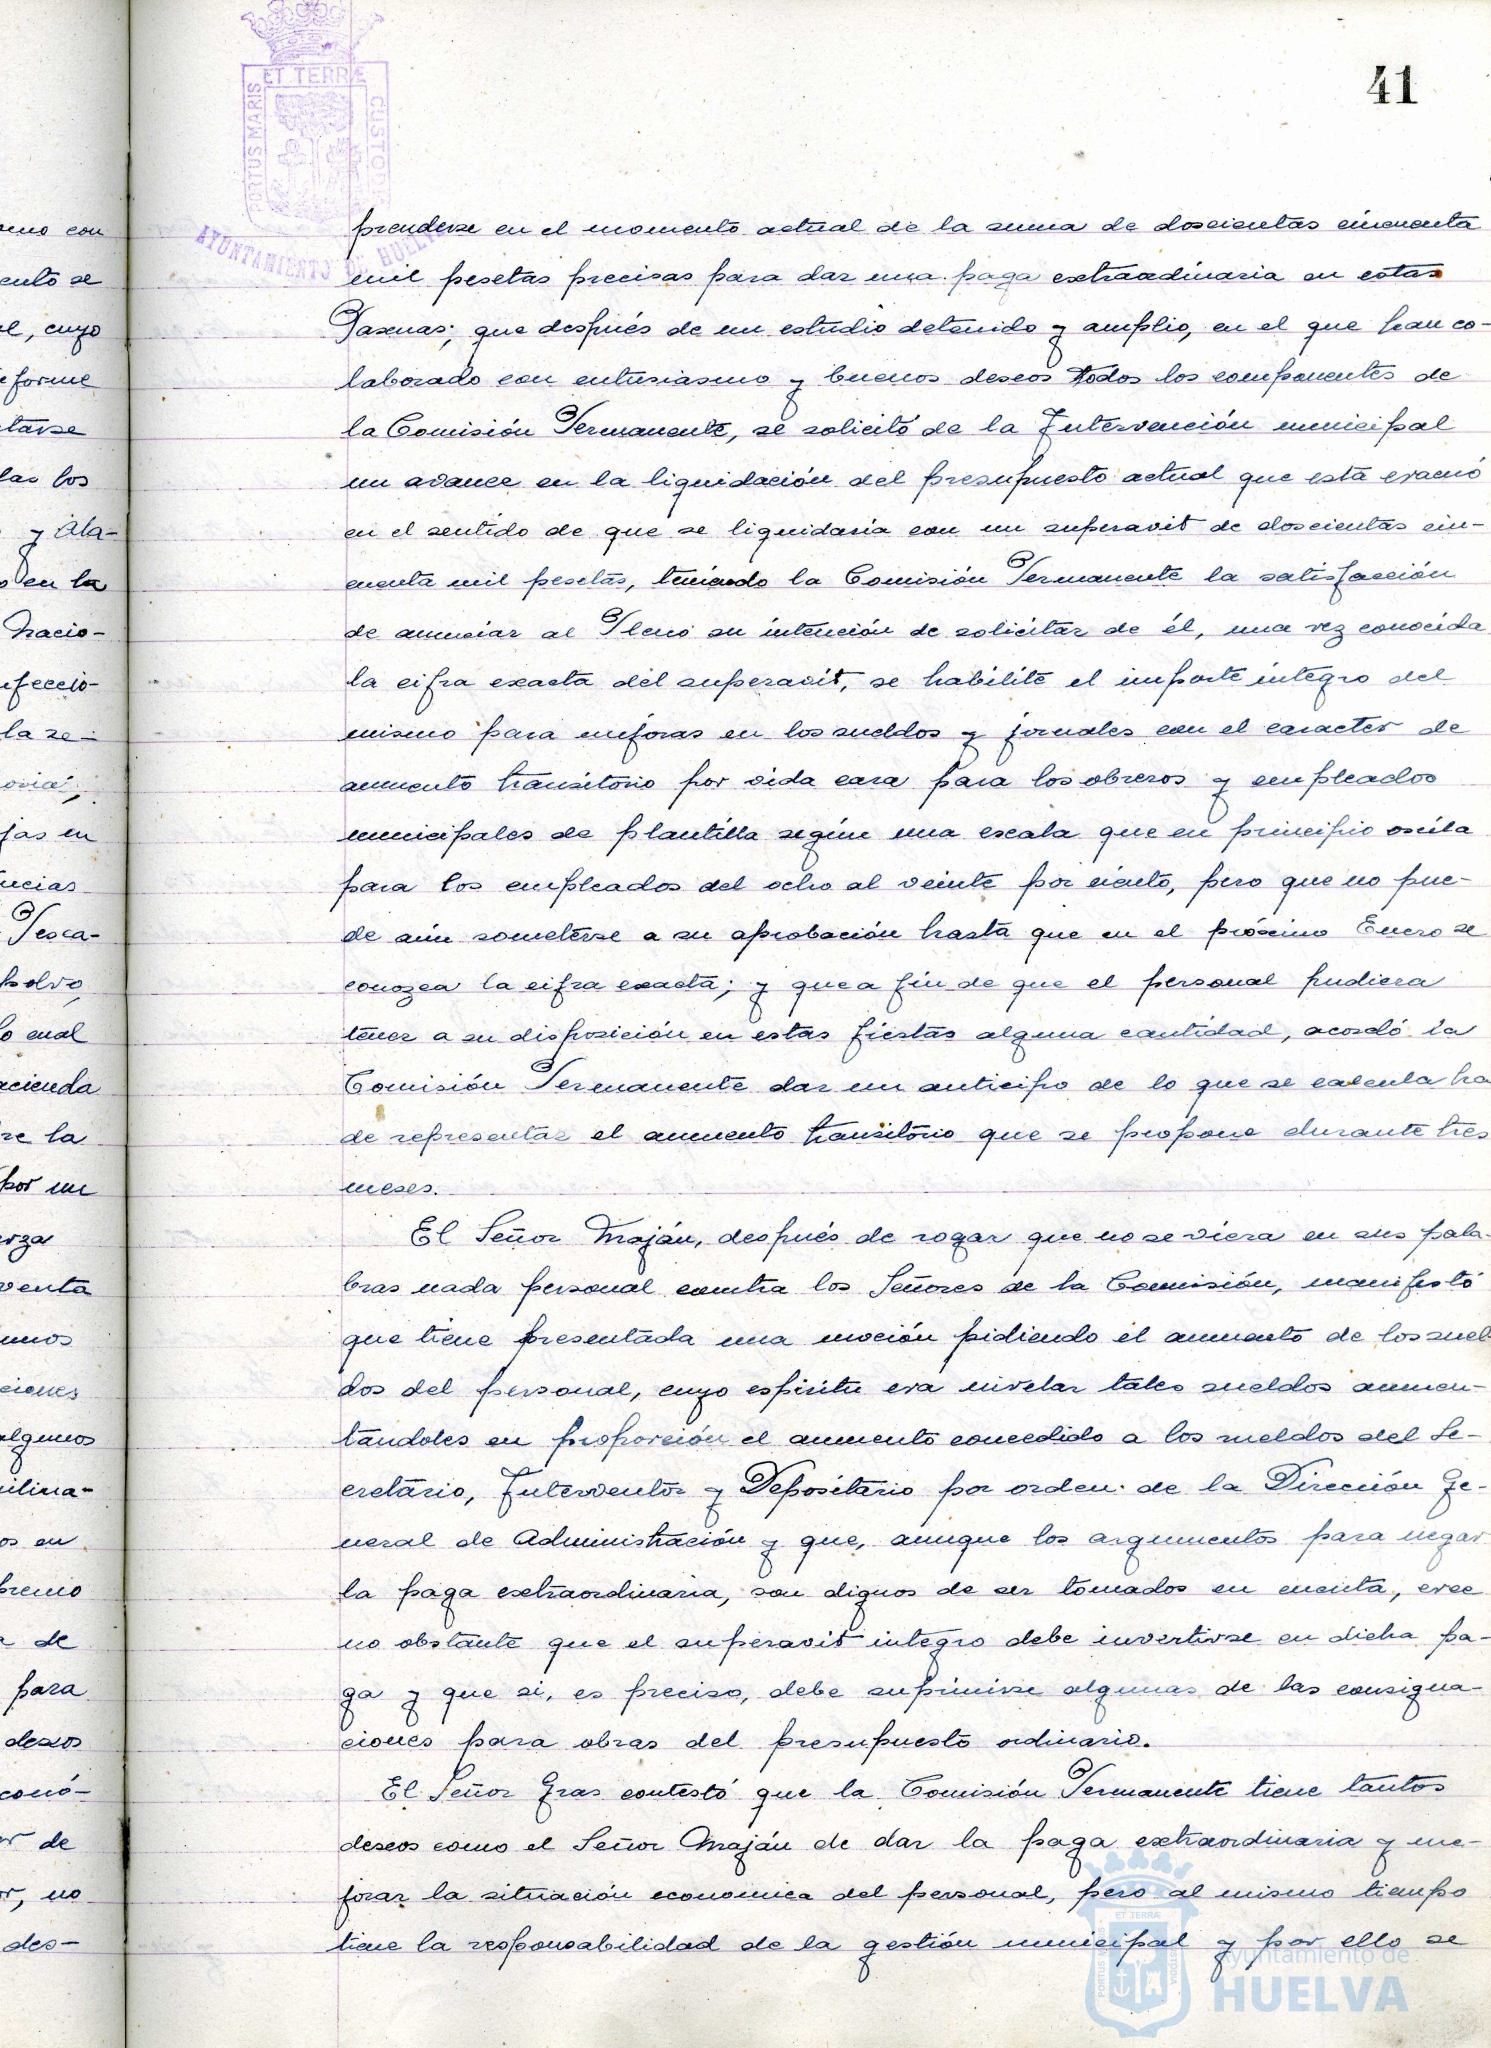 41
PORTUS MARIS ET TERRÆ CUSTODIA
AYUNTAMIENTO DE HUELVA
prenderse en el momento actual de la suma de doscientas cincuenta
mil pesetas precisas para dar una paga extraordinaria en estas
Pascuas; que después de un estudio detenido y amplio, en el que han co-
laborado con entusiasmo y buenos deseos todos los componentes de
la Comisión Permanente, se solicitó de la Intervención municipal
un avance en la liquidación del presupuesto actual que está evacuó
en el sentido de que se liquidaría con un superavit de doscientas cin-
cuenta mil pesetas, teniendo la Comisión Permanente la satisfacción
de anunciar al Pleno su intención de solicitar de él, una vez conocida
la cifra exacta del superavit, se habilite el importe integro del
mismo para mejoras en los sueldos y jornales con el caracter de
aumento transitorio por vida cara para los obreros y empleados
municipales de plantilla según una escala que en principio oscila
para los empleados del ocho al veinte por ciento, pero que no pue-
de aún someterse a su aprobación hasta que en el próximo Enero se
conozca la cifra exacta; y que a fin de que el personal pudiera
tener a su disposición en estas fiestas alguna cantidad, acordó la
Comisión Permanente dar un anticipo de lo que se calcula ha
de representar el aumento transitorio que se propone durante tres
meses.
El Señor Maján, después de rogar que no se viera en sus pala-
bras nada personal contra los Señores de la Comisión, manifestó
que tiene presentada una moción pidiendo el aumento de los suel-
dos del personal, cuyo espíritu era nivelar tales sueldos aumen-
tándoles en proporción el aumento concedido a los sueldos del Se-
cretario, Interventor y Depositario por orden de la Dirección Ge-
neral de Administración y que, aunque los argumentos para negar
la paga extraordinaria, son dignos de ser tomados en cuenta, cree
no obstante que el superavit integro debe invertirse en dicha pa-
ga y que si, es preciso, debe suprimirse algunas de las consigna-
ciones para obras del presupuesto ordinario.
El Señor Gras contestó que la Comisión Permanente tiene tantos
deseos como el Señor Maján de dar la paga extraordinaria y me-
jorar la situación economica del personal, pero al mismo tiempo
tiene la responsabilidad de la gestión municipal y por ello se
Ayuntamiento de
HUELVA